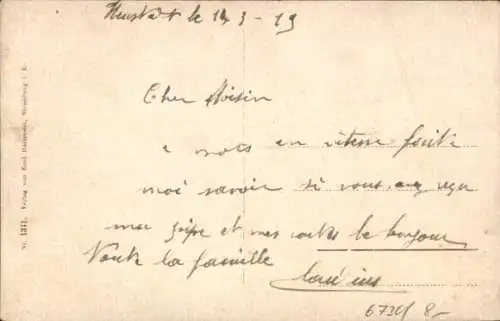 le 14 3 - 19
Cher Voisin
2 mots en vitesse faite
moi savoir si vous avez reçu
ma et mes cartes le bonjour
Toute la famille
6731 8-
Nr. 1311. Verlag von Emil Hartmann, Strassburg i. E.